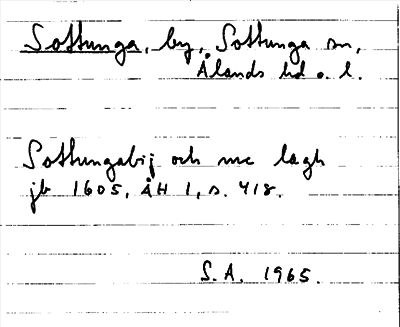 Sottunga, by, Sottunga sn,
Ålands hd o. l.
Sottungabij och me lagh
jb 1605, ÅH 1, s. 418.
S.A. 1965.